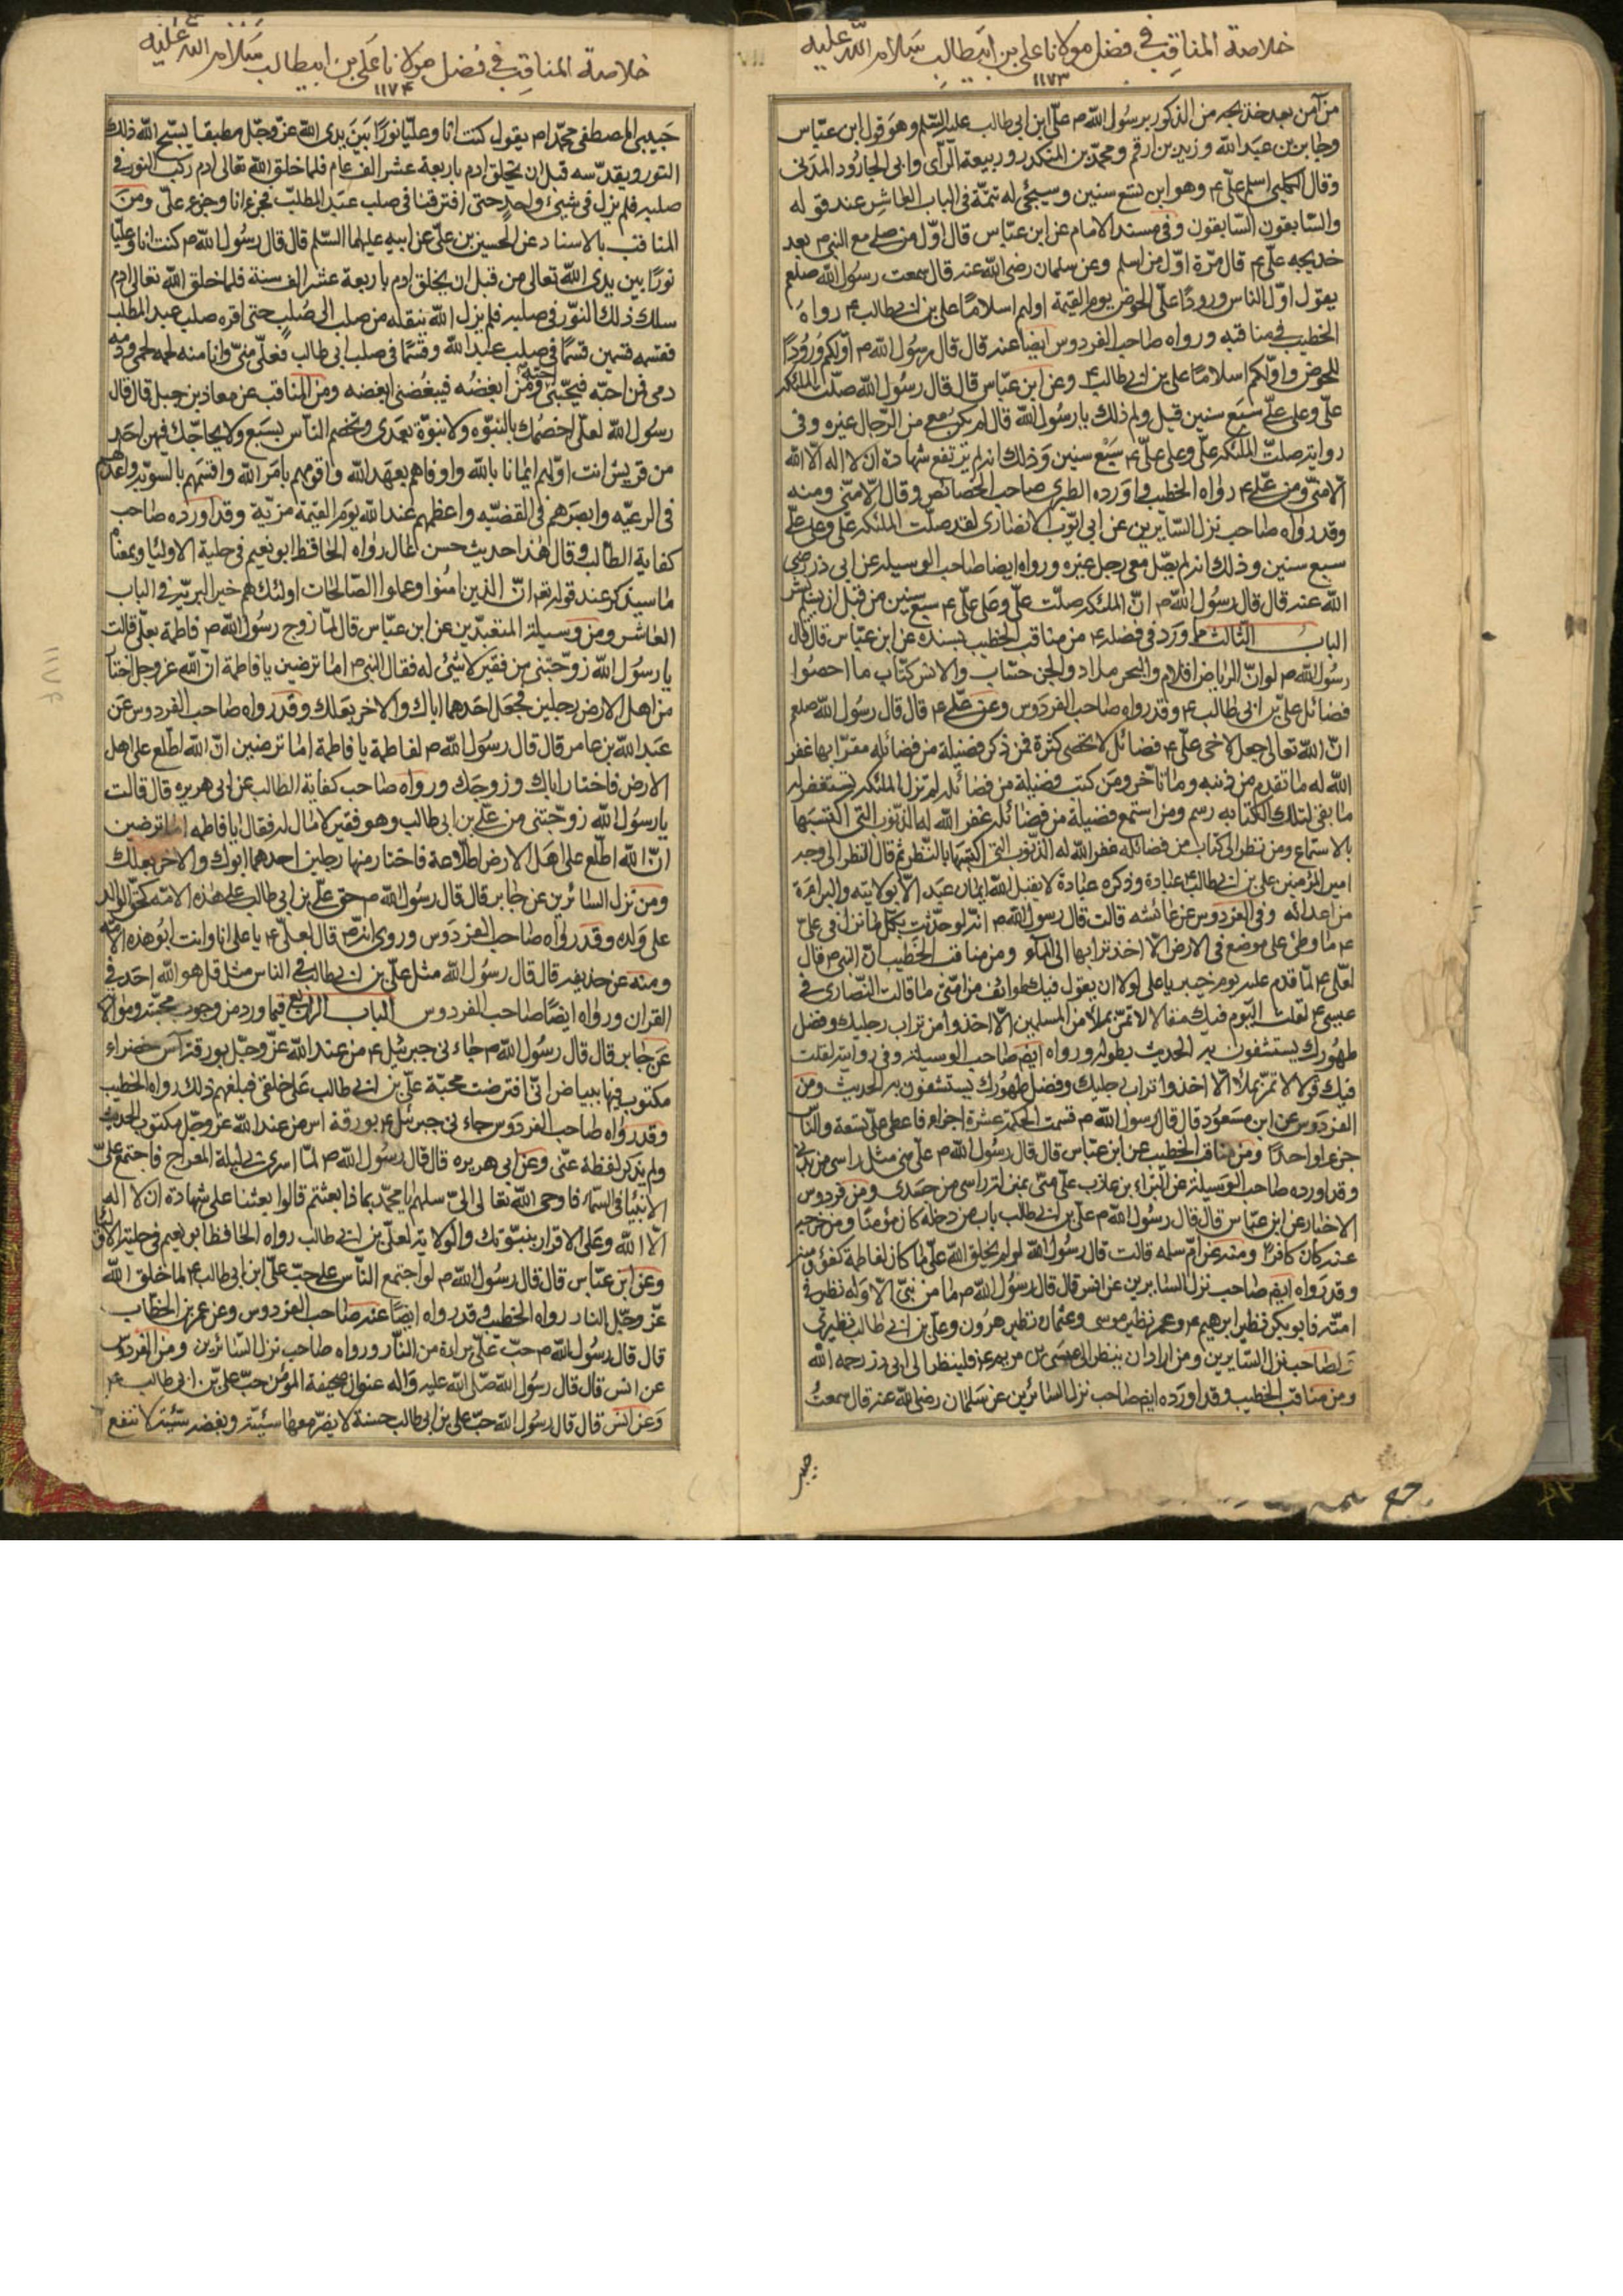 خلاصة المناقب في فضل مولانا علي بن ابيطالب سلام الله عليه
١١٧٣
من آمن بعد خديجه من الذكور برسول الله ص علي ابن ابي طالب عليه السلم وهو قول ابن عباس
وجابر بن عبد الله وزيد بن ارقم ومحمد بن المنكدر وربيعة الرأى وابي الجارود المدنى
وقال الكلبي اسلم علي ع وهو ابن تسع سنين وسيجئ له تتمة في الباب العاشر عند قوله
والسابقون السابقون وفي مسند الامام عن ابن عباس قال اول من صلى مع النبي ص بعد
خديجه علي ع قال مرة اول من اسلم وعن سلمان رضى الله عنه قال سمعت رسول الله صلعم
يقول اول الناس ورودا على الحوض يوم القيمة اولهم اسلاما علي بن ابي طالب ع رواه
الخطيب في مناقبه ورواه صاحب الفردوس ايضا عنه قال قال رسول الله ص اولكم ورودا
للحوض واولكم اسلاما علي بن ابي طالب ع وعن ابن عباس قال قال رسول الله صلت الملئكه
علي وعلى علي سبع سنين قيل ولم ذلك يا رسول الله قال لم يكن معي من الرجال غيره وفى
رواية صلت الملئكه علي وعلى علي ع سبع سنين وذلك انه لم ترتفع شهادة ان لا اله الا الله
الا منى ومن علي ع رواه الخطيب واورده الطبرى صاحب الخصائص وقال الا منى ومنه
وقد رواه صاحب نزل السائرين عن ابي ايوب الانصارى لقد صلت الملئكه علي وعلى علي
سبع سنين وذلك انه لم يصل معي رجل غيره ورواه ايضا صاحب الوسيله عن ابي ذر رضى
الله عنه قال قال رسول الله ص ان الملئكه صلت علي وعلى علي ع سبع سنين من قبل ان يسلم بشر
الباب الثالث ما ورد في فضله ع من مناقب الخطيب بسنده عن ابن عباس قال قال
رسول الله ص لو ان الرياض اقلام والبحر مداد والجن حساب والانس كتاب ما احصوا
فضائل علي بن ابي طالب ع وقد رواه صاحب الفردوس وعن علي ع قال قال رسول الله صلعم
ان الله تعالى جعل لاخى علي ع فضائل لا تحصى كثرة فمن ذكر فضيلة من فضائله مقرا بها غفر
الله له ما تقدم من ذنبه وما تأخر ومن كتب فضيلة من فضائله لم تزل الملئكه تستغفر له
ما بقى لتلك الكتابه رسم ومن استمع فضيلة من فضائله غفر الله له الذنوب التى اكتسبها
بالاستماع ومن نظر الى كتاب من فضائله غفر الله له الذنوب التى اكتسبها بالنظر ثم قال النظر الى وجه
امير المؤمنين علي بن ابي طالب ع عبادة وذكره عبادة لا يقبل الله ايمان عبد الا بولايته والبراءة
من اعدائه وفى الفردوس عن عائشه قالت قال رسول الله ص انه لو حدثت بكل ما نزل في علي
ع ما وطئ على موضع في الارض الا اخذ ترابها الى الماء ومن مناقب الخطيب ان النبي ص قال
لعلي ع لما قدم عليه يوم خيبر يا علي لولا ان يقول فيك طوائف من امتى ما قالت النصارى في
عيسى ع لقلت اليوم فيك مقالا لا تمر بملأ من المسلمين الا اخذوا من تراب رجليك وفضل
طهورك يستشفون به الحديث بطوله ورواه ايضا صاحب الوسيله وفى رواية لقلت
فيك قولا لا تمر بملأ الا اخذوا تراب رجليك وفضل طهورك يستشفون به الحديث ومن
الفردوس عن ابن مسعود قال قال رسول الله ص قسمت الحكمة عشرة اجزاء فاعطى علي تسعة والناس
جزءا واحدا ومن مناقب الخطيب عن ابن عباس قال قال رسول الله ص علي منى مثل راسى من بدنى
وقد اورده صاحب الوسيلة عن البراء بن عازب علي منى بمنزلة راسى من جسدى ومن فردوس
الاخبار عن ابن عباس قال قال رسول الله ص علي بن ابي طالب باب من دخله كان مؤمنا ومن خرج
عنه كان كافرا ومنه عن ام سلمه قالت قال رسول الله لو لم يخلق الله علي ما كان لفاطمة كفؤ
وقد رواه ايضا صاحب نزل السايرين عن انس قال قال رسول الله ص ما من نبى الا وله نظير في
امته فابو بكر نظير ابرهيم ع وعمر نظير موسى وعثمان نظير هرون وعلي بن ابي طالب نظيرى
لصاحب نزل السايرين ومن اراد ان ينظر الى عيسى بن مريم ع فلينظر الى ابي ذر رحمه الله
ومن مناقب الخطيب وقد اورده ايضا صاحب نزل السائرين عن سلمان رضى الله عنه قال سمعت
خلاصة المناقب في فضل مولانا علي بن ابيطالب سلام الله عليه
١١٧۴
حبيبى المصطفى محمدا ص يقول كنت انا وعليا نورا بين يدى الله عز وجل مطيعا يسبح الله ذلك
النور ويقدسه قبل ان يخلق ادم باربعة عشر الف عام فلما خلق الله تعالى ادم ركب النور في
صلبه فلم يزل في شيئ واحد حتى افترقنا في صلب عبد المطلب فجزء انا وجزء علي ومن
المناقب بالاسناد عن الحسين بن علي عن ابيه عليهما السلم قال قال رسول الله ص كنت انا وعليا
نورا بين يدى الله تعالى من قبل ان يخلق ادم باربعة عشر الف سنة فلما خلق الله تعالى ادم
سلك ذلك النور في صلبه فلم يزل الله ينقله من صلب الى صلب حتى اقره صلب عبد المطلب
فقسمه قسمين قسما في صلب عبد الله وقسما في صلب ابي طالب فعلي منى وانا منه لحمه لحمى ودمه
دمى فمن احبه فبحبى احبه ومن ابغضه فببغضى ابغضه ومن المناقب عن معاذ بن جبل قال قال
رسول الله لعلي اخصمك بالنبوه ولا نبوة بعدى وتخصم الناس بسبع ولا يحاجك فيهن احد
من قريش انت اولهم ايمانا بالله واوفاهم بعهد الله واقومهم بامر الله واقسمهم بالسويه واعدلهم
في الرعيه وابصرهم في القضيه واعظمهم عند الله يوم القيمة مزية وقد اورده صاحب
كفاية الطالب وقال هذا حديث حسن عال رواه الحافظ ابو نعيم في حلية الاوليا وبمعنا
ما سيذكر عند قوله تع ان الذين امنوا وعملوا الصالحات اولئك هم خير البرية في الباب
العاشر ومن وسيلة المتعبدين عن ابن عباس قال لما زوج رسول الله ص فاطمة بعلي قالت
يا رسول الله زوجتنى من فقير لا شئ له فقال النبي ص اما ترضين يا فاطمة ان الله عز وجل اختار
من اهل الارض رجلين فجعل احدهما اباك والاخر بعلك وقد رواه صاحب الفردوس عن
عبد الله بن عامر قال قال رسول الله ص لفاطمة يا فاطمة اما ترضين ان الله اطلع على اهل
الارض فاختار اباك وزوجك ورواه صاحب كفاية الطالب عن ابي هريره قال قالت
يا رسول الله زوجتنى من علي بن ابي طالب وهو فقير لا مال له فقال يا فاطمه اما ترضين
ان الله اطلع على اهل الارض اطلاعة فاختار منها رجلين احدهما ابوك والاخر بعلك
ومن نزل السائرين عن جابر قال قال رسول الله ص حق علي بن ابي طالب على هذه الامة كحق الوالد
على ولده وقد رواه صاحب الفردوس وروى انه ص قال لعلي ع يا علي انا وانت ابو هذه الامة
ومنه عن حذيفه قال قال رسول الله مثل علي بن ابي طالب في الناس مثل قل هو الله احد في
القران ورواه ايضا صاحب الفردوس الباب الرابع فيما ورد من وجوب محبته وموالاته
عن جابر قال قال رسول الله ص جاءنى جبرئيل ع من عند الله عز وجل بورقة آس خضراء
مكتوب فيها ببياض انى افترضت محبة علي بن ابي طالب على خلقى فبلغهم ذلك رواه الخطيب
وقد رواه صاحب الفردوس جاءنى جبرئيل ع بورقة اس من عند الله عز وجل مكتوب الحديث
ولم يذكر لفظة عنى وعن ابي هريره قال قال رسول الله ص لما اسرى بى ليلة المعراج فاجتمع علي
الانبياء في السماء فاوحى الله تعالى الي سلهم يا محمد بما ذا بعثتم قالوا بعثنا على شهادة ان لا اله
الا الله وعلى الاقرار بنبوتك والولاية لعلي بن ابي طالب رواه الحافظ ابو نعيم في حلية الاوليا
وعن ابن عباس قال قال رسول الله ص لو اجتمع الناس على حب علي ابن ابي طالب ع لما خلق الله
عز وجل النار رواه الخطيب وقد رواه ايضا عنه صاحب الفردوس وعن عمر بن الخطاب
قال قال رسول الله ص حب علي براءة من النار ورواه صاحب نزل السائرين ومن الفردوس
عن انس قال قال رسول الله صلى الله عليه واله عنوان صحيفة المؤمن حب علي بن ابي طالب ع
وعن انس قال قال رسول الله حب علي بن ابي طالب حسنة لا يضر معها سيئة وبغضه سيئة لا تنفع